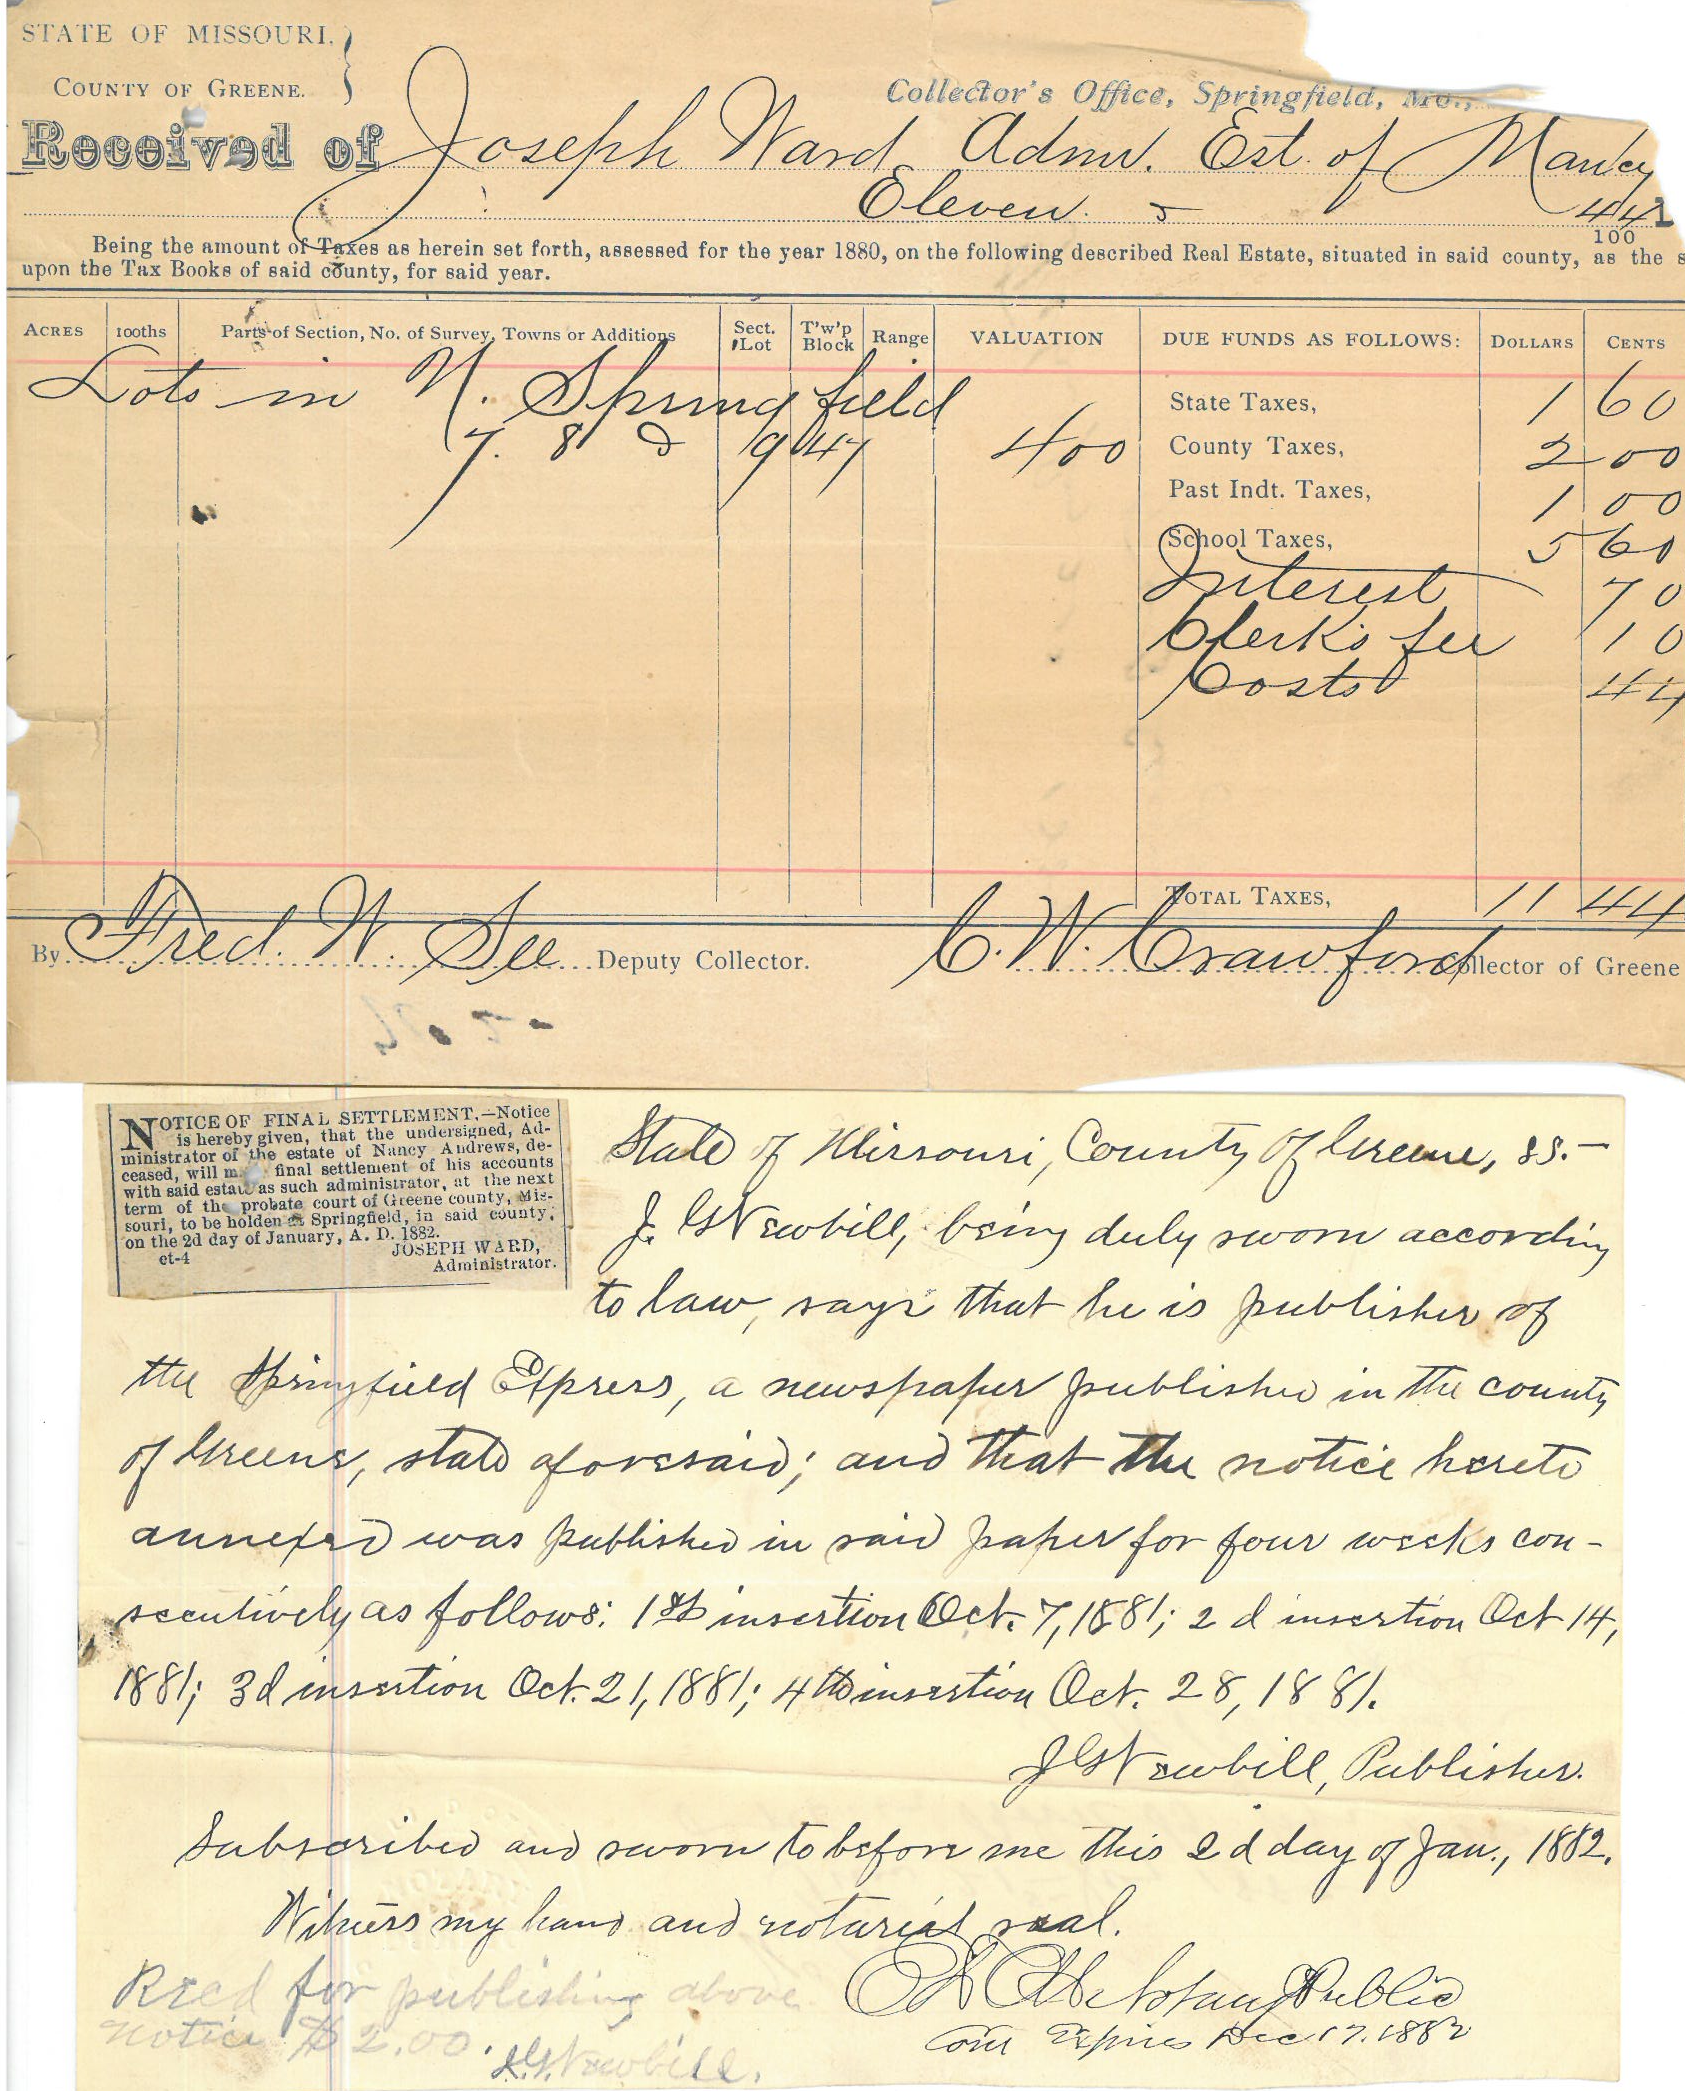 STATE OF MISSOURI,
COUNTY OF GREENE.
Collector's Office, Springfield, Mo.,
Received of Joseph Ward Admr. Est. of
Eleven 44
100
Being the amount of Taxes as herein set forth, assessed for the year 1880, on the following described Real Estate, situated in said county, as the s
upon the Tax Books of said county, for said year.
ACRES 100ths Parts of Section, No. of Survey, Towns or Additions Sect. Lot T'w'p Block Range VALUATION DUE FUNDS AS FOLLOWS: DOLLARS CENTS
Lots in N. Springfield
State Taxes, 1 60
7. 8 & 9 47 400 County Taxes, 2 00
Past Indt. Taxes, 1 00
School Taxes, 5 60
Interest 70
Clerk's fee 10
Costs 44
TOTAL TAXES, 11 44
By Fred. W. See Deputy Collector. C. W. Crawford Collector of Greene
NOTICE OF FINAL SETTLEMENT.—Notice
is hereby given, that the undersigned, Ad-
ministrator of the estate of Nancy Andrews, de-
ceased, will m final settlement of his accounts
with said estate as such administrator, at the next
term of the probate court of Greene county, Mis-
souri, to be holden at Springfield, in said county,
on the 2d day of January, A. D. 1882.
JOSEPH WARD,
et-4 Administrator.
State of Missouri, County of Greene, ss.—
J. G. Newbill, being duly sworn according
to law, says that he is publisher of
the Springfield Express, a newspaper published in the county
of Greene, state aforesaid; and that the notice hereto
annexed was published in said paper for four weeks con-
secutively as follows: 1st insertion Oct. 7, 1881; 2d insertion Oct 14,
1881; 3d insertion Oct. 21, 1881; 4th insertion Oct. 28, 1881.
J G Newbill, Publisher.
Subscribed and sworn to before me this 2d day of Jan., 1882.
Witness my hand and notarial seal.
Public
Recd for publishing above
Com Expires Dec 17. 1882
notice $2.00.
J.G. Newbill.